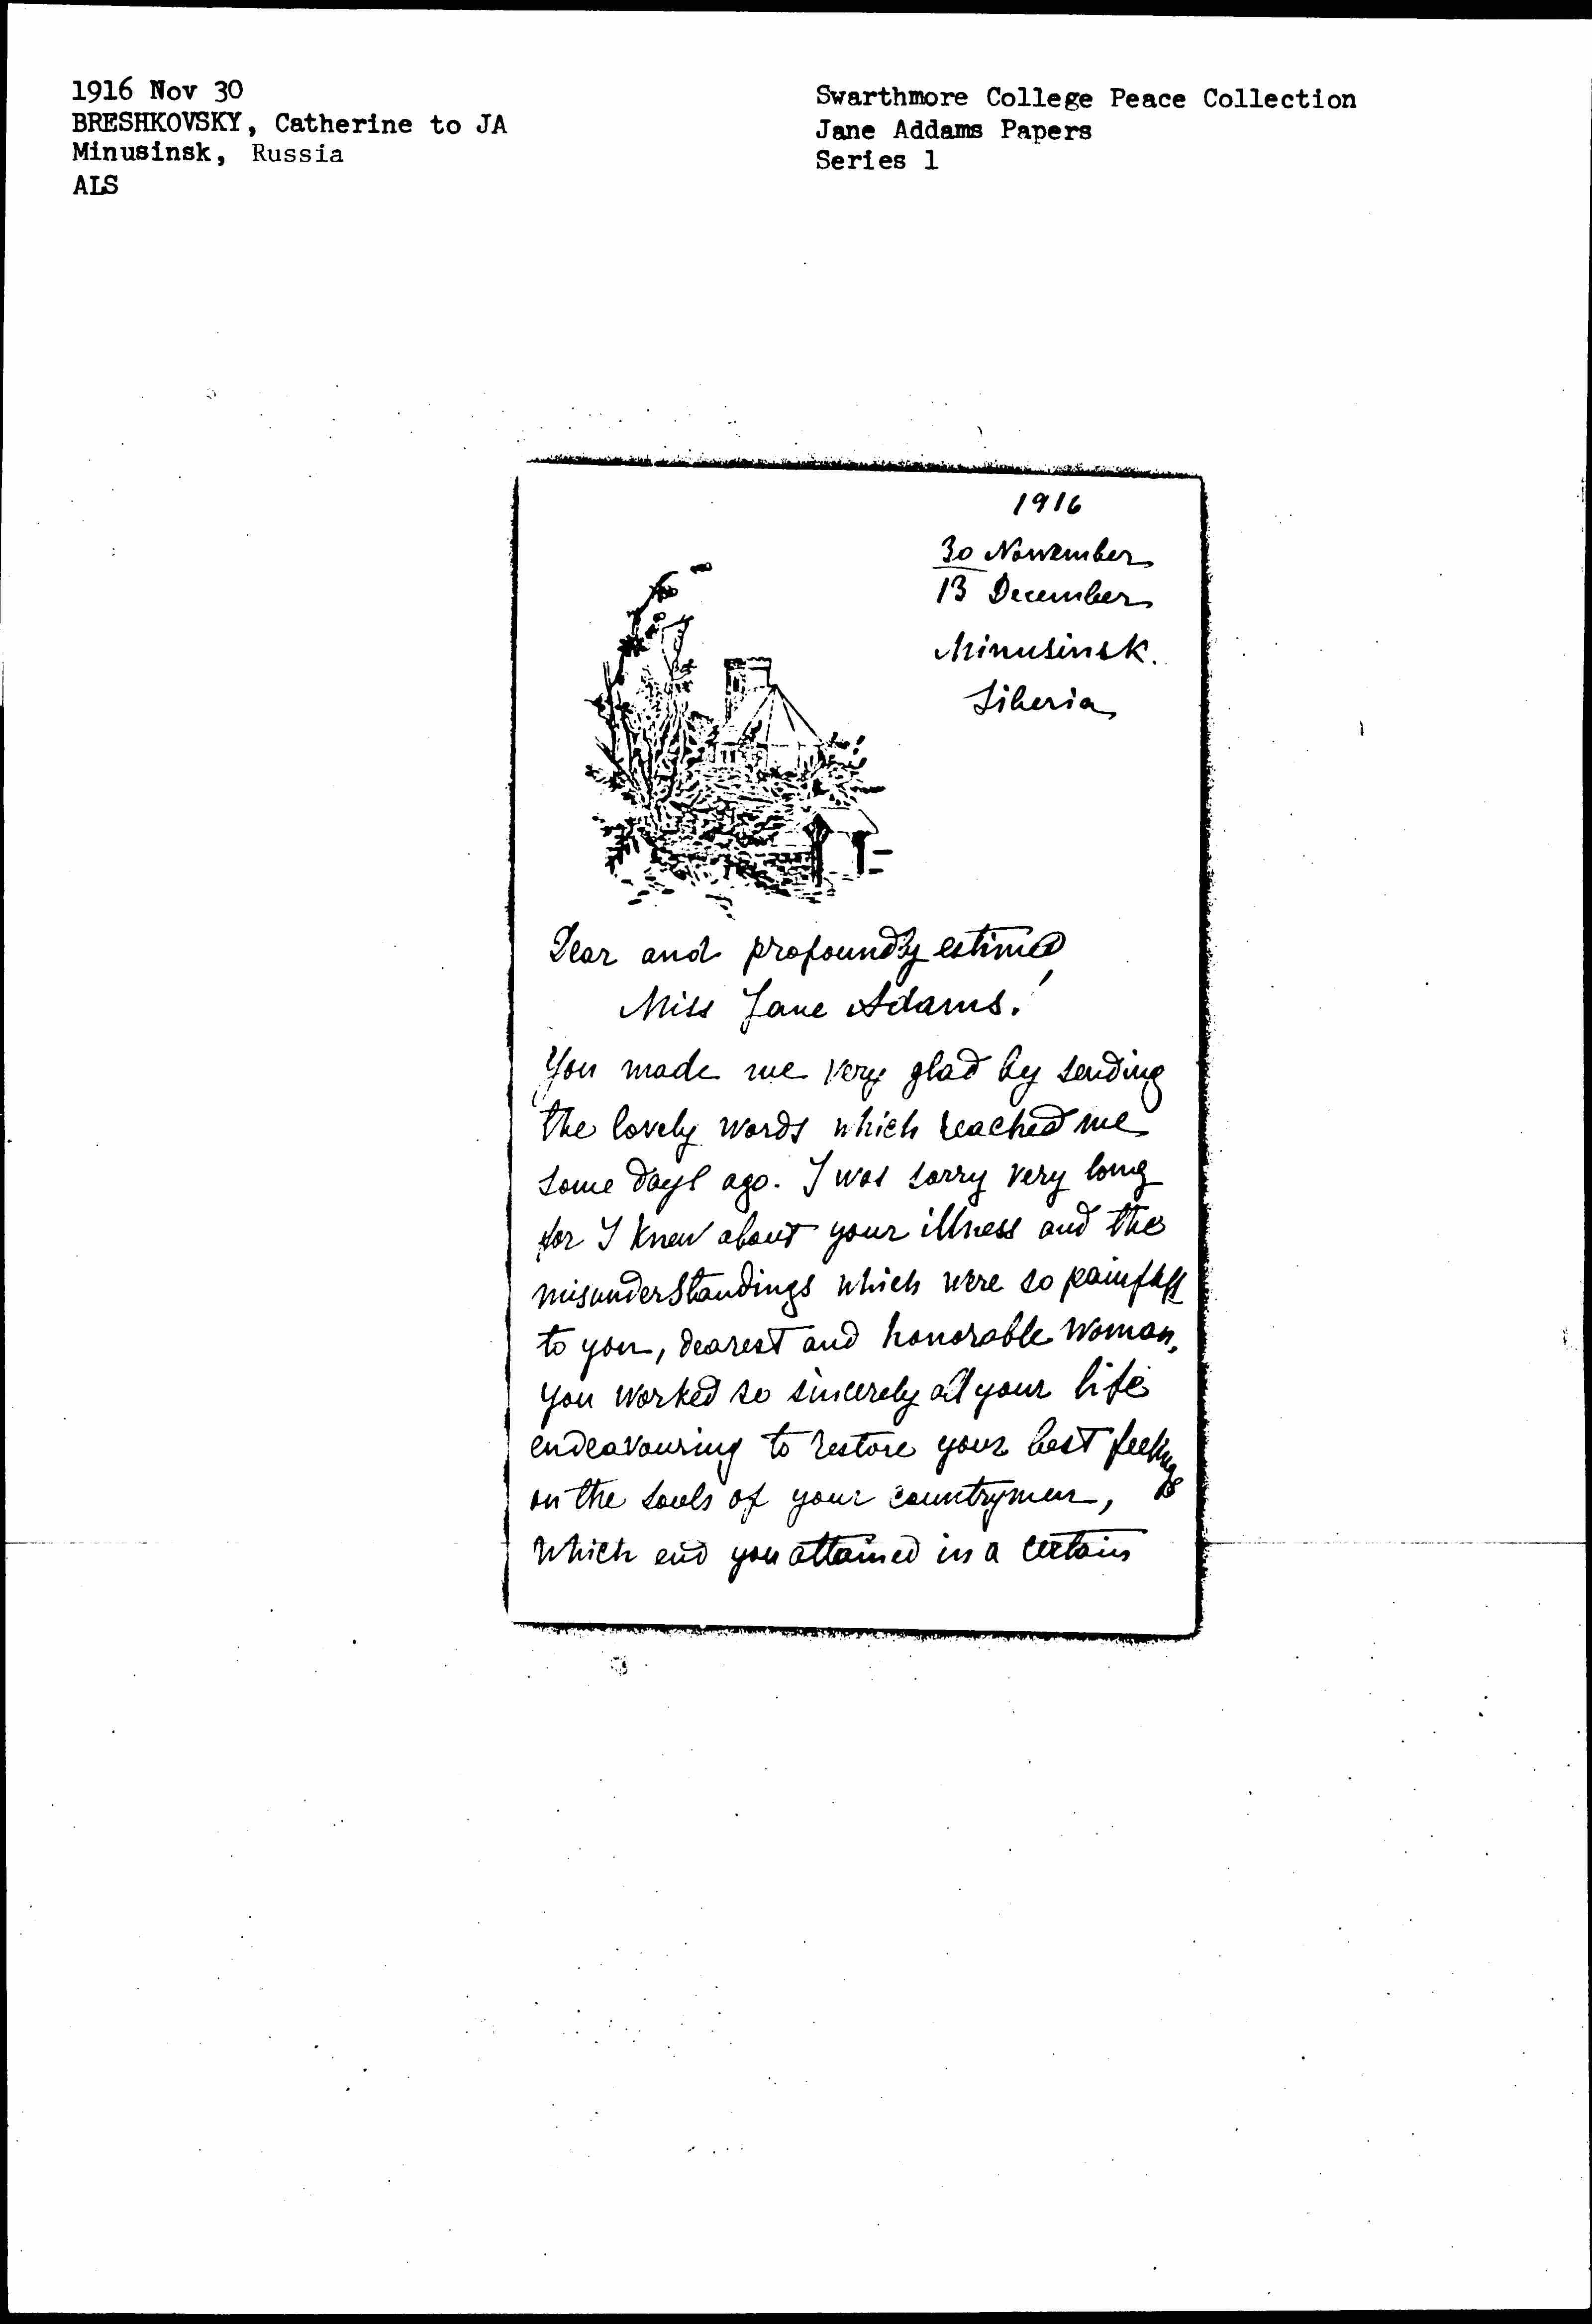 1916 Nov 30
BRESHKOVSKY, Catherine to JA
Minusinsk, Russia
ALS
Swarthmore College Peace Collection
Jane Addams Papers
Series 1
1916
30 November
13 December
Minusinsk.
Siberia
Dear and profoundly estimed
Miss Jane Adams!
You made me very glad by sending
the lovely words which reached me
some days ago. I was sorry very long
for I knew about your illness and the
misunderstandings which were so painfull
to you, dearest and honorable woman,
you worked so sincerely all your life
endeavouring to restore your best feelings
on the souls of your countrymen,
which end you attained in a certain